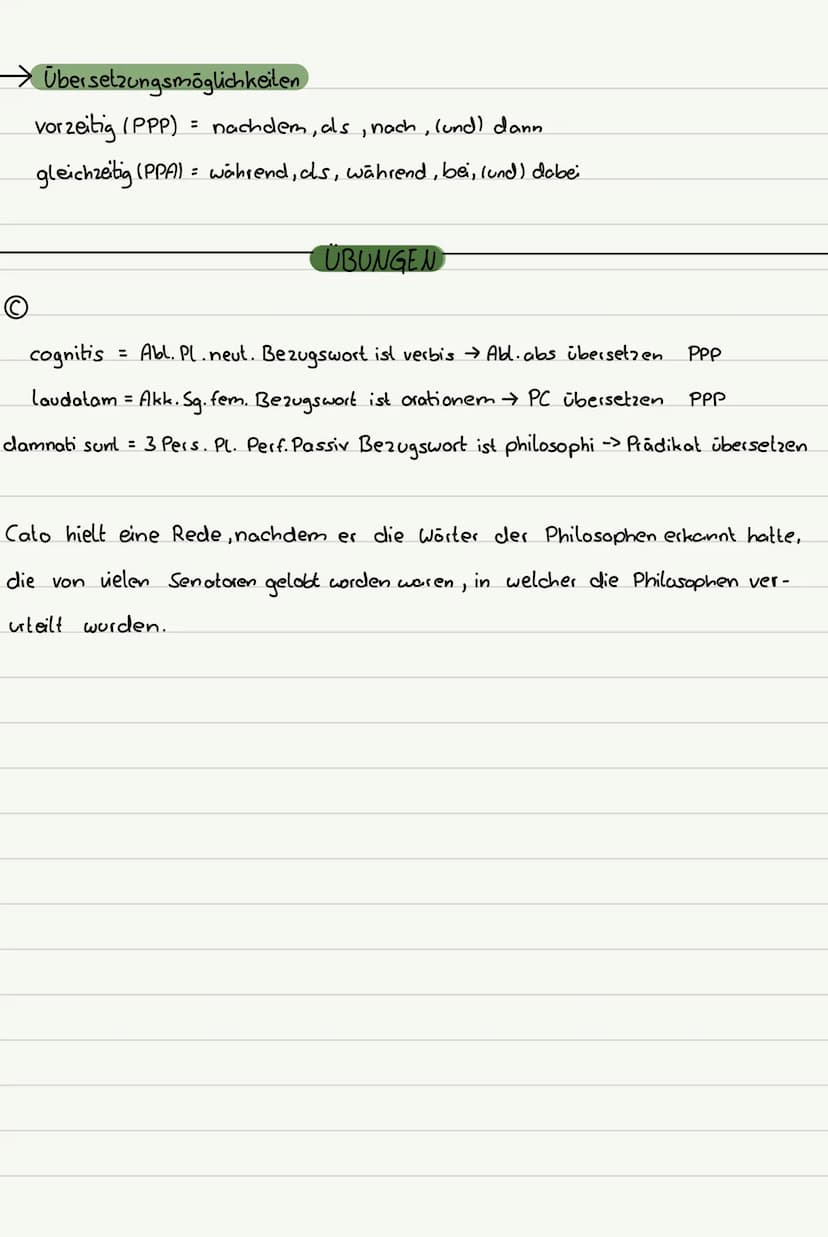 → Übersetzungsmöglichkeiten
vorzeitig (PPP) = nachdem, als, nach, (und) dann
gleichzeitig (PPA) = während, als, während, bei, (und) dabei
ÜBUNGEN
©
cognitis = Abl. Pl. neut. Bezugswort ist verbis → Abl. abs übersetzen PPP
laudatam = Akk. Sg. fem. Bezugswort ist orationem → PC übersetzen PPP
damnati sunt = 3 Pers. Pl. Perf. Passiv Bezugswort ist philosophi -> Prädikat übersetzen
Cato hielt eine Rede, nachdem er die Wörter der Philosophen erkannt hatte,
die von vielen Senatoren gelobt worden waren, in welcher die Philosophen ver-
urteilt wurden.